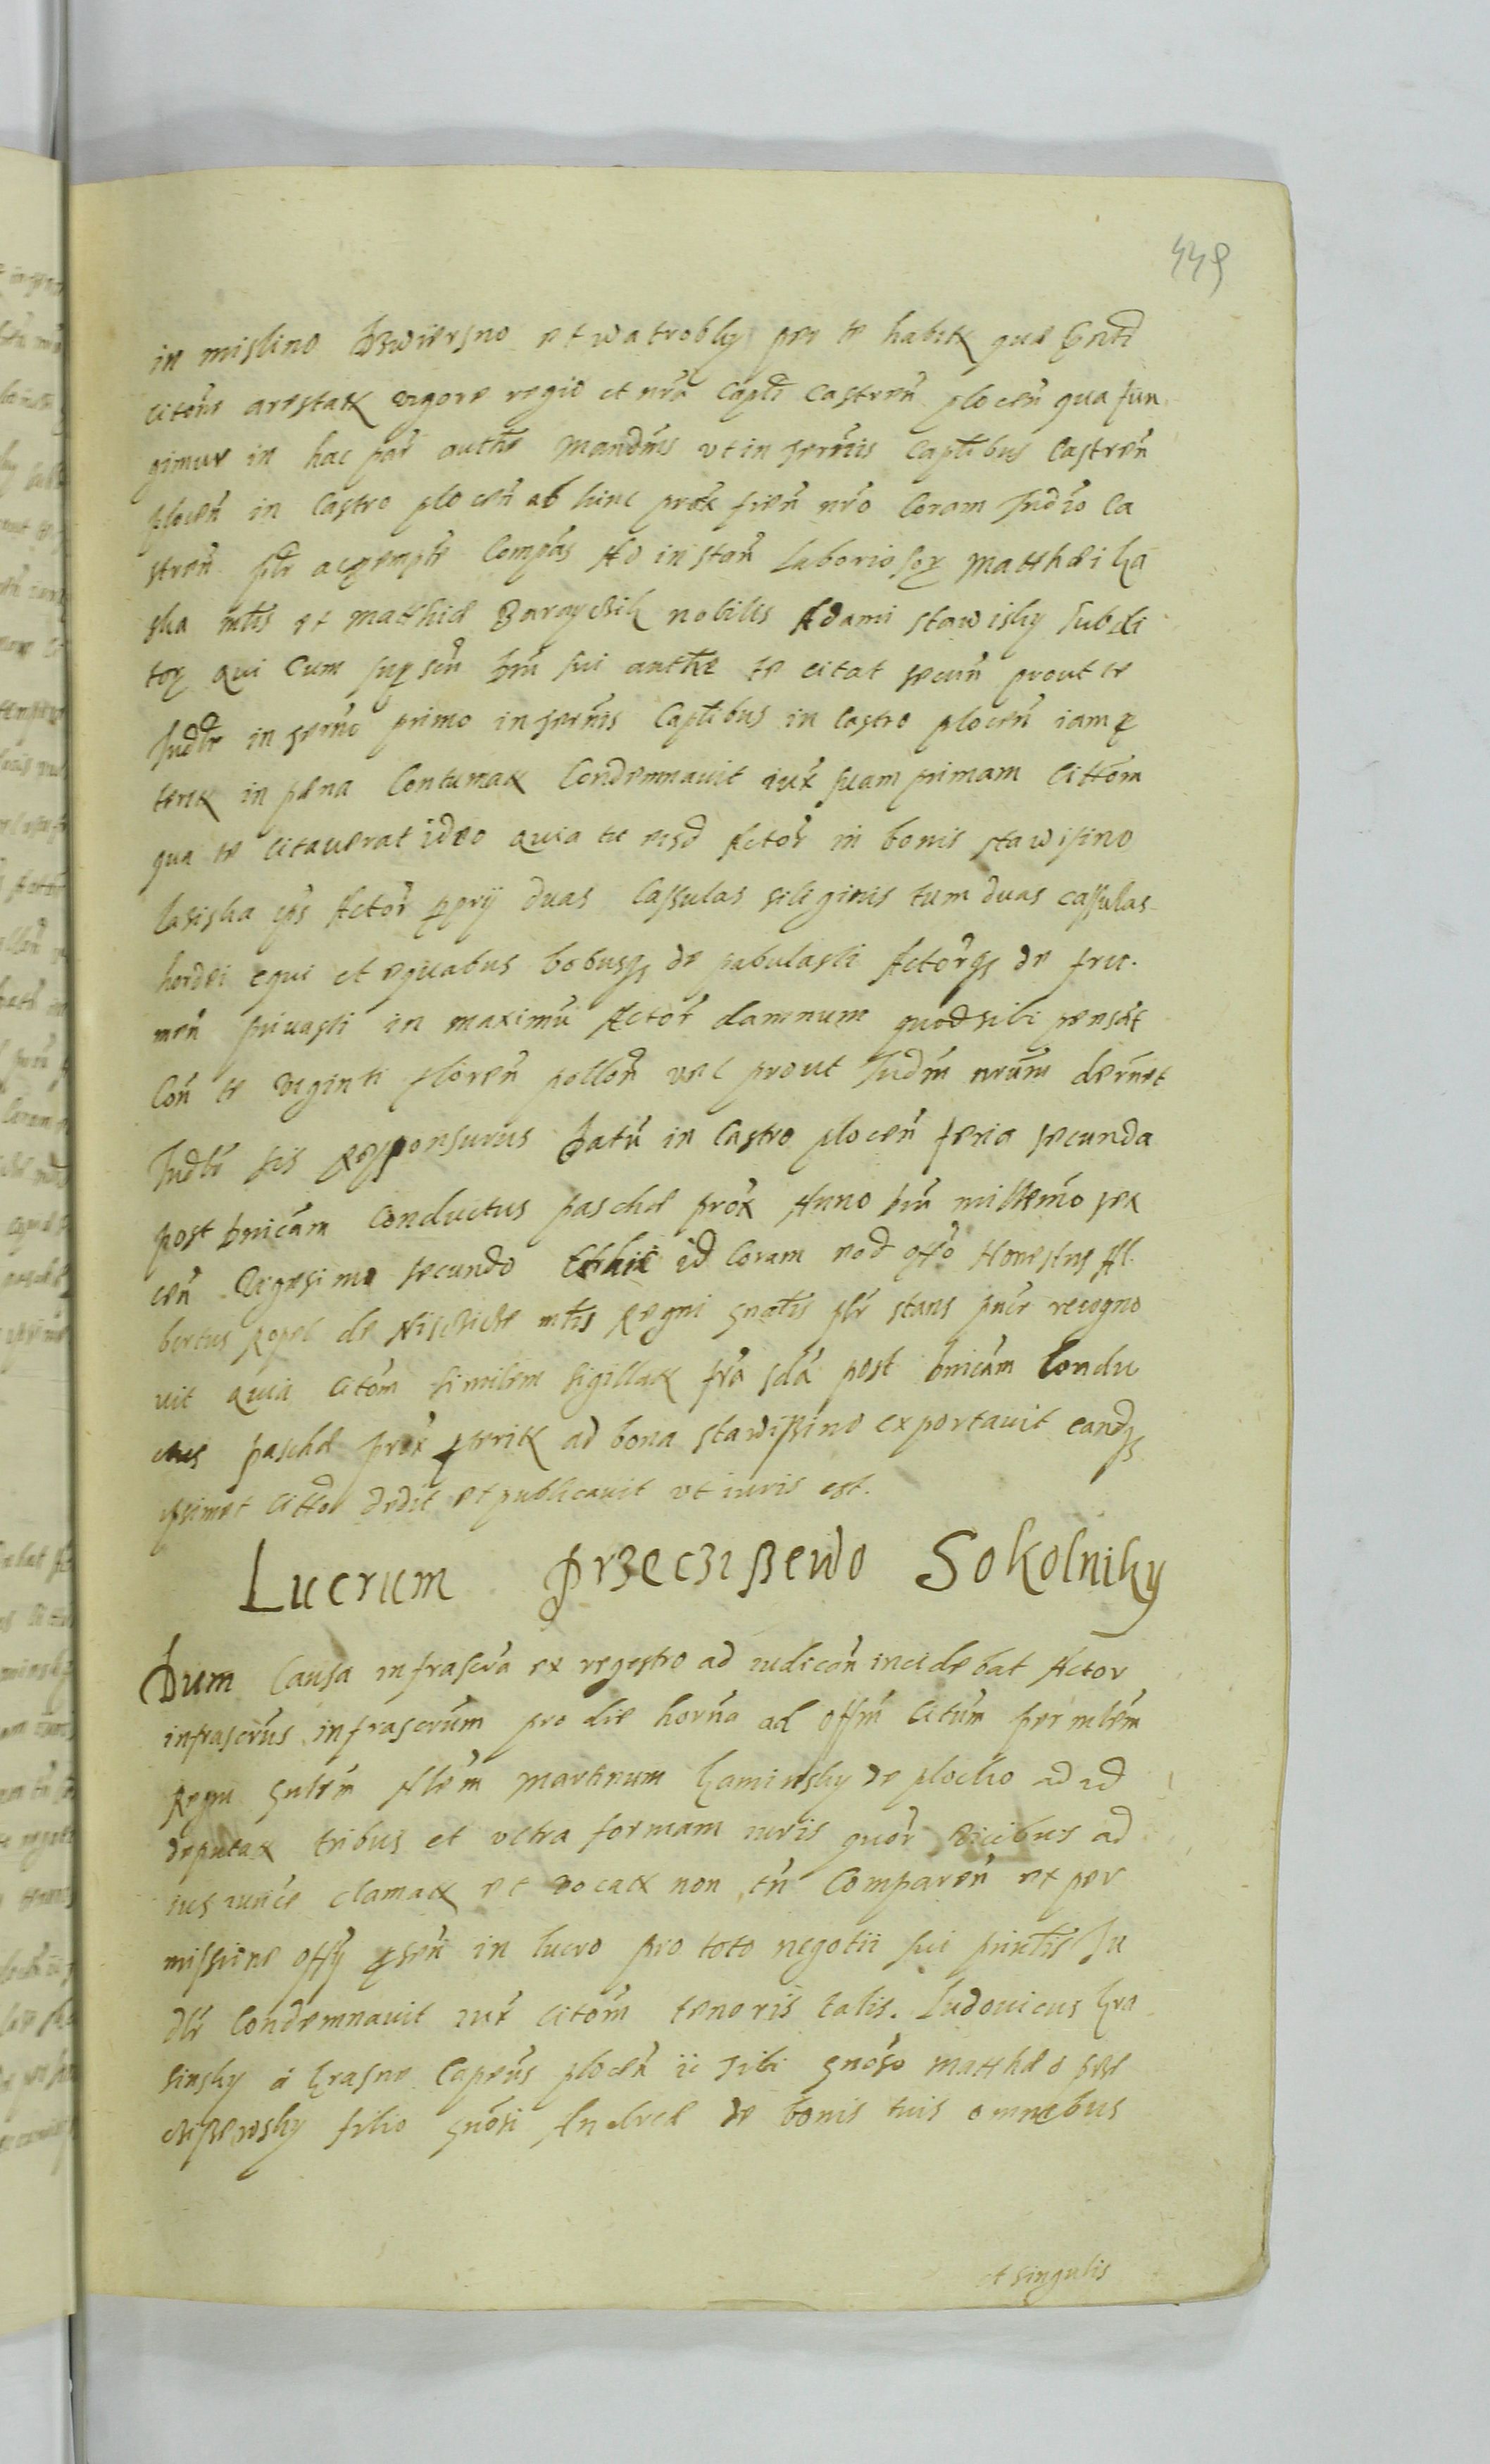 449
in mislino Dzwiersno et watrobky per te habitx quæ
citõne arestatx vigore regio et nrã Capti Castreñ ploceñ qua fun
gimur in hac par̃ authe Mandm̃s vt in termis Captibus Castreñ
ploceñ in Castro ploceñ ab hinc prox fieñ nrõ Coram Judio Ca
streñ plr ac pempte Compãs Ad instañ Laboriosoꝝ Matthæi Ka
ska mlis et Matthiæ nobilis Adami stawisky subdi
toꝝ qui Cum sui authe te citat secuñ prout te
Judlr in termo primo in termis Captibus in Castro ploceñ iam
teritx in pæna Contumatx Condemnauit iux suam primam Cittom
qua te Citauerat ideo quia tu eisd Actor in bonis stawisino
Actor ppry duas Cassulas siliginis tum duas cassulas
hordei equi et equabus bobusqs de pabulasti Actorqs de fru
meñ priuasti in maximũ Actor damnum quod sibi pensat
Coñ te viginti floreñ polloñ vel prout Judm̃ nrũm dernet
Judlr sis Responsurus Datũ in Castro ploceñ feria secunda
post Dnicãm Conductus paschæ prox Anno Dñi millemo sex
ceñ Vigesimo secundo id Coram eod offo Honestus Al
bertus Popel de mlis Regni gnalis plr stans pnce recogno
uit quia Citom similem sigillatx fra scda post Dnicãm Condu
ctus paschæ prox pteritx ad bona stawissino exportauit eandqs
ipsimet Citto dedit et publicauit vt iuris est.
Lucrum Przeczissewo Sokolniky
Dum Causa infrascra ex regestro ad iudicañ incidebat Actor
infrascrus infrascrum pro die horna ad offm̃ Citum per mlem
Regni gnlem Martinum Kaminsky de plocko ad id
deputatx tribus et vltra formam iuris quor vicibus ad
ius iunce clamatx et vocatx non tñ Compareñ ex per
missione offy pseñ in lucro pro toto negotii sui prinlis Ju
dlr Condemnauit iux citom tenoris talis. Ludouicus Kra
sinsky a Krasne Capneus ploceñ ii Tibi gnoso Matthæo prze
czissewsky filio gnosi Andreæ de bonis tuis omnebus
et singulis